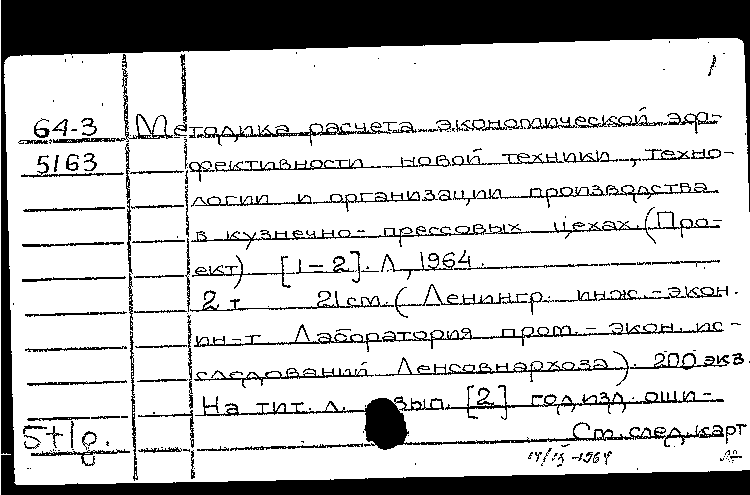 1
64-3 Методика расчета экономической эф-
5163 фективности новой техники, техно-
логии и организации производства
в кузнечно-прессовых цехах. (Про-
ект) [1-2]. Л, 1964.
2 т 21 см. (Ленингр. инж.-экон.
ин-т Лаборатория пром.-экон. ис-
следований Ленсовнархоза). 200 экз.
На тит. л. вып. [2] год изд. оши-
5+1g. Ст. след. карт